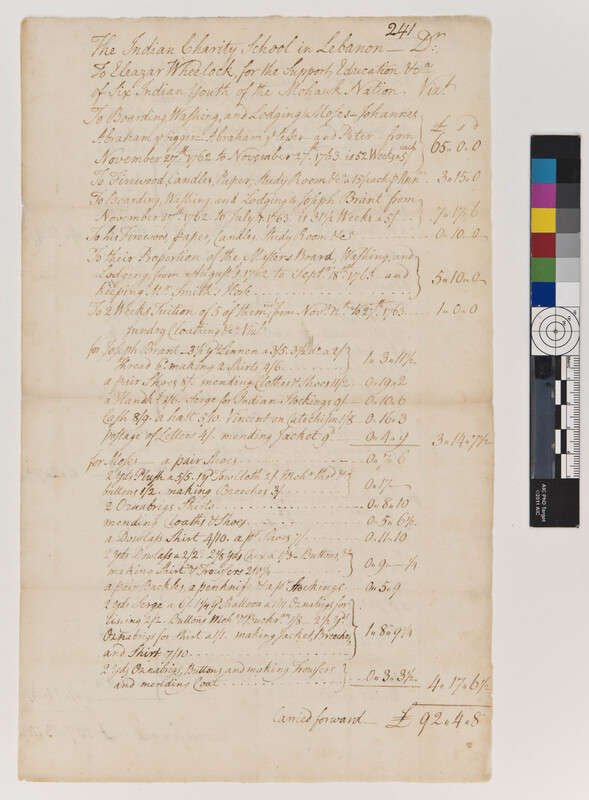 241
The Indian Charity School in Lebanon — Dr.
To Eleazar Wheelock, for the Support, Education &ca
of Six Indian Youth of the Mohawk Nation. Vizt
To Boarding, Washing, and Lodging to Moses — Johannes
Abraham ye bigger — Abraham ye lesser — and Peter — from
November 27th 1762 to November 27th 1763 is 52 Weeks a 5/ each
£ s d
65 " 0 " 0
To Firewood, Candles, Paper, Study Room &c a 15/ each pr Annm 3 " 15 " 0
To Boarding, Washing, and Lodging to Joseph Brant from
November 27th 1762 to July 1763 is 31½ Weeks a 5/ 7 " 17 " 6
To his Firewood, paper, Candles, Study Room &c 0 " 10 " 0
To their Proportion of the Masters Board, Washing, and
Lodging, from August 1762 to Septr 18th 1763 and
keeping Mr Smith's Horse 5 " 10 " 0
To 2 Weeks Tuition of 5 of them from Novr 12th to 27th 1763 1 " 0 " 0
sundry Cloathing &c Vizt
for Joseph Brant — 3½ yds Linnen a 3/5. 3½ do a 2/
thread 6d making 2 Shirts 4/6 1 " 3 " 11½
a pair Shoes 8/. mending Clothes & Shoes 11/2 0 " 19 " 2
a Handkf 1/6. Serge for Indian Stockings 9/ 0 " 10 " 6
Cash 8/9. a hatt 5/10 Vincent on Catechism 1/8 0 " 16 " 3
postage of Letters 4/. mending Jacket 9d 0 " 4 " 9 3 " 14 " 7½
for Moses — a pair Shoes 0 " 7 " 6
2 yds Plush a 3/5. 1 yd Tow Cloth 2/ Mohr thrd &
buttons 1/2. making Breeches 3/ 0 " 17 " —
2 Oznabrigs Shirts 0 " 8 " 10
mending Cloaths & Shoes 0 " 5 " 6½
a Dowlass Shirt 4/10. a pr Shoes 7/ 0 " 11 " 10
2 yds Dowlass a 2/2. 2 yds Check a 1/3 — Buttons, &
making Shirt & Trousers 0 " 9 " — ¼
a pair Buckles, a penknife & a pr Stockings 0 " 5 " 9
2 yds Serge a 6/ 1¼ yd Shalloon Oznabrigs for
lining 2/2. Buttons Moh. & Buckrm 1/8 — 2½ yds
Oznabrigs for shirt making Jacket, Breeches
and Shirt 7/10 1 " 8 " 9¼
2 yds Oznabrigs, Buttons and making Trousers
and mending Coat 0 " 3 " 3½ 4 " 17 " 6½
Carried forward £ 92 " 4 " 8